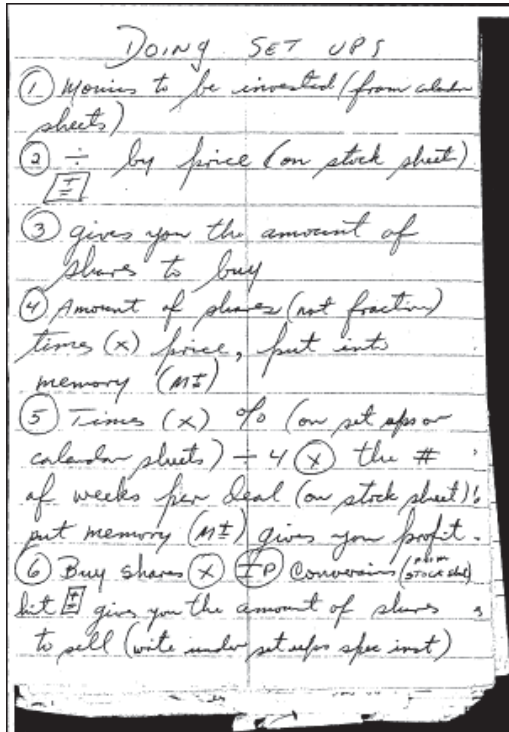 DOING SET UPS
① Monies to be invested (from calendar
sheets)
② ÷ by price (on stock sheet)
±
=
③ gives you the amount of
shares to buy
④ Amount of shares (not fraction)
times (x) price, put into
memory (M±)
⑤ Times (x) % (on set ups or
calandar sheets) ÷ 4 ⓧ the #
of weeks per deal (on stock sheet)
put memory (M±) gives you profit.
⑥ Buy shares ⓧ Conversions (FROM
STOCK sheet)
hit ± = gives you the amount of shares
to sell (write under set ups spec inst)